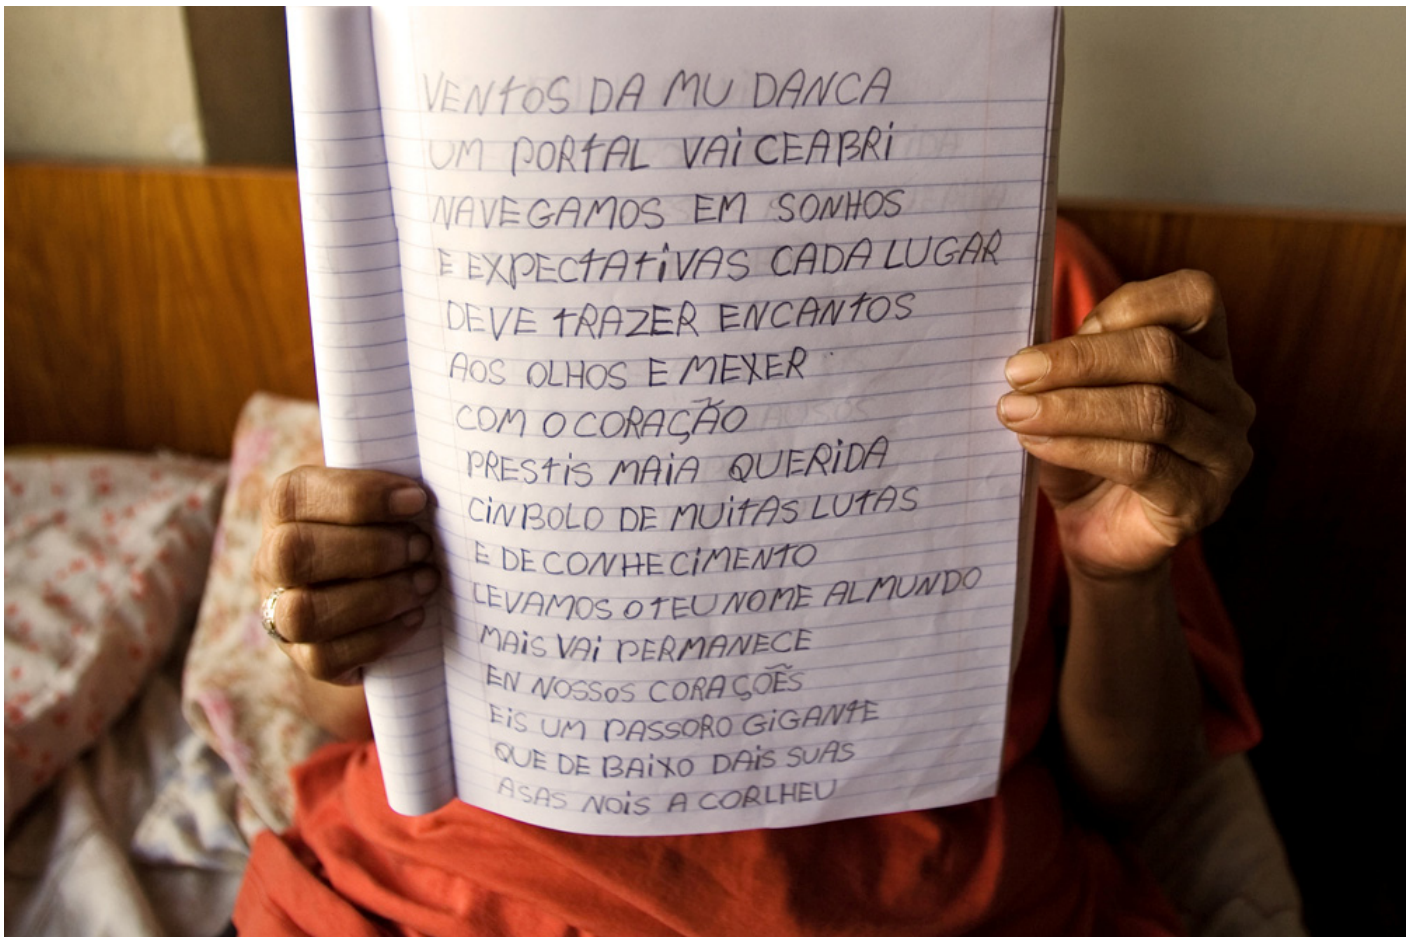 VENTOS DA MU DANCA
UM PORTAL VAI CEABRI
NAVEGAMOS EM SONHOS
E EXPECTATIVAS CADA LUGAR
DEVE TRAZER ENCANTOS
AOS OLHOS E MEXER
COM O CORAÇÃO
PRESTIS MAIA QUERIDA
CINBOLO DE MUITAS LUTAS
E DE CONHECIMENTO
LEVAMOS O TEU NOME AL MUNDO
MAIS VAI PERMANECE
EN NOSSOS CORAÇÕES
EIS UM PASSORO GIGANTE
QUE DE BAIXO DAIS SUAS
ASAS NOIS A CORLHEU